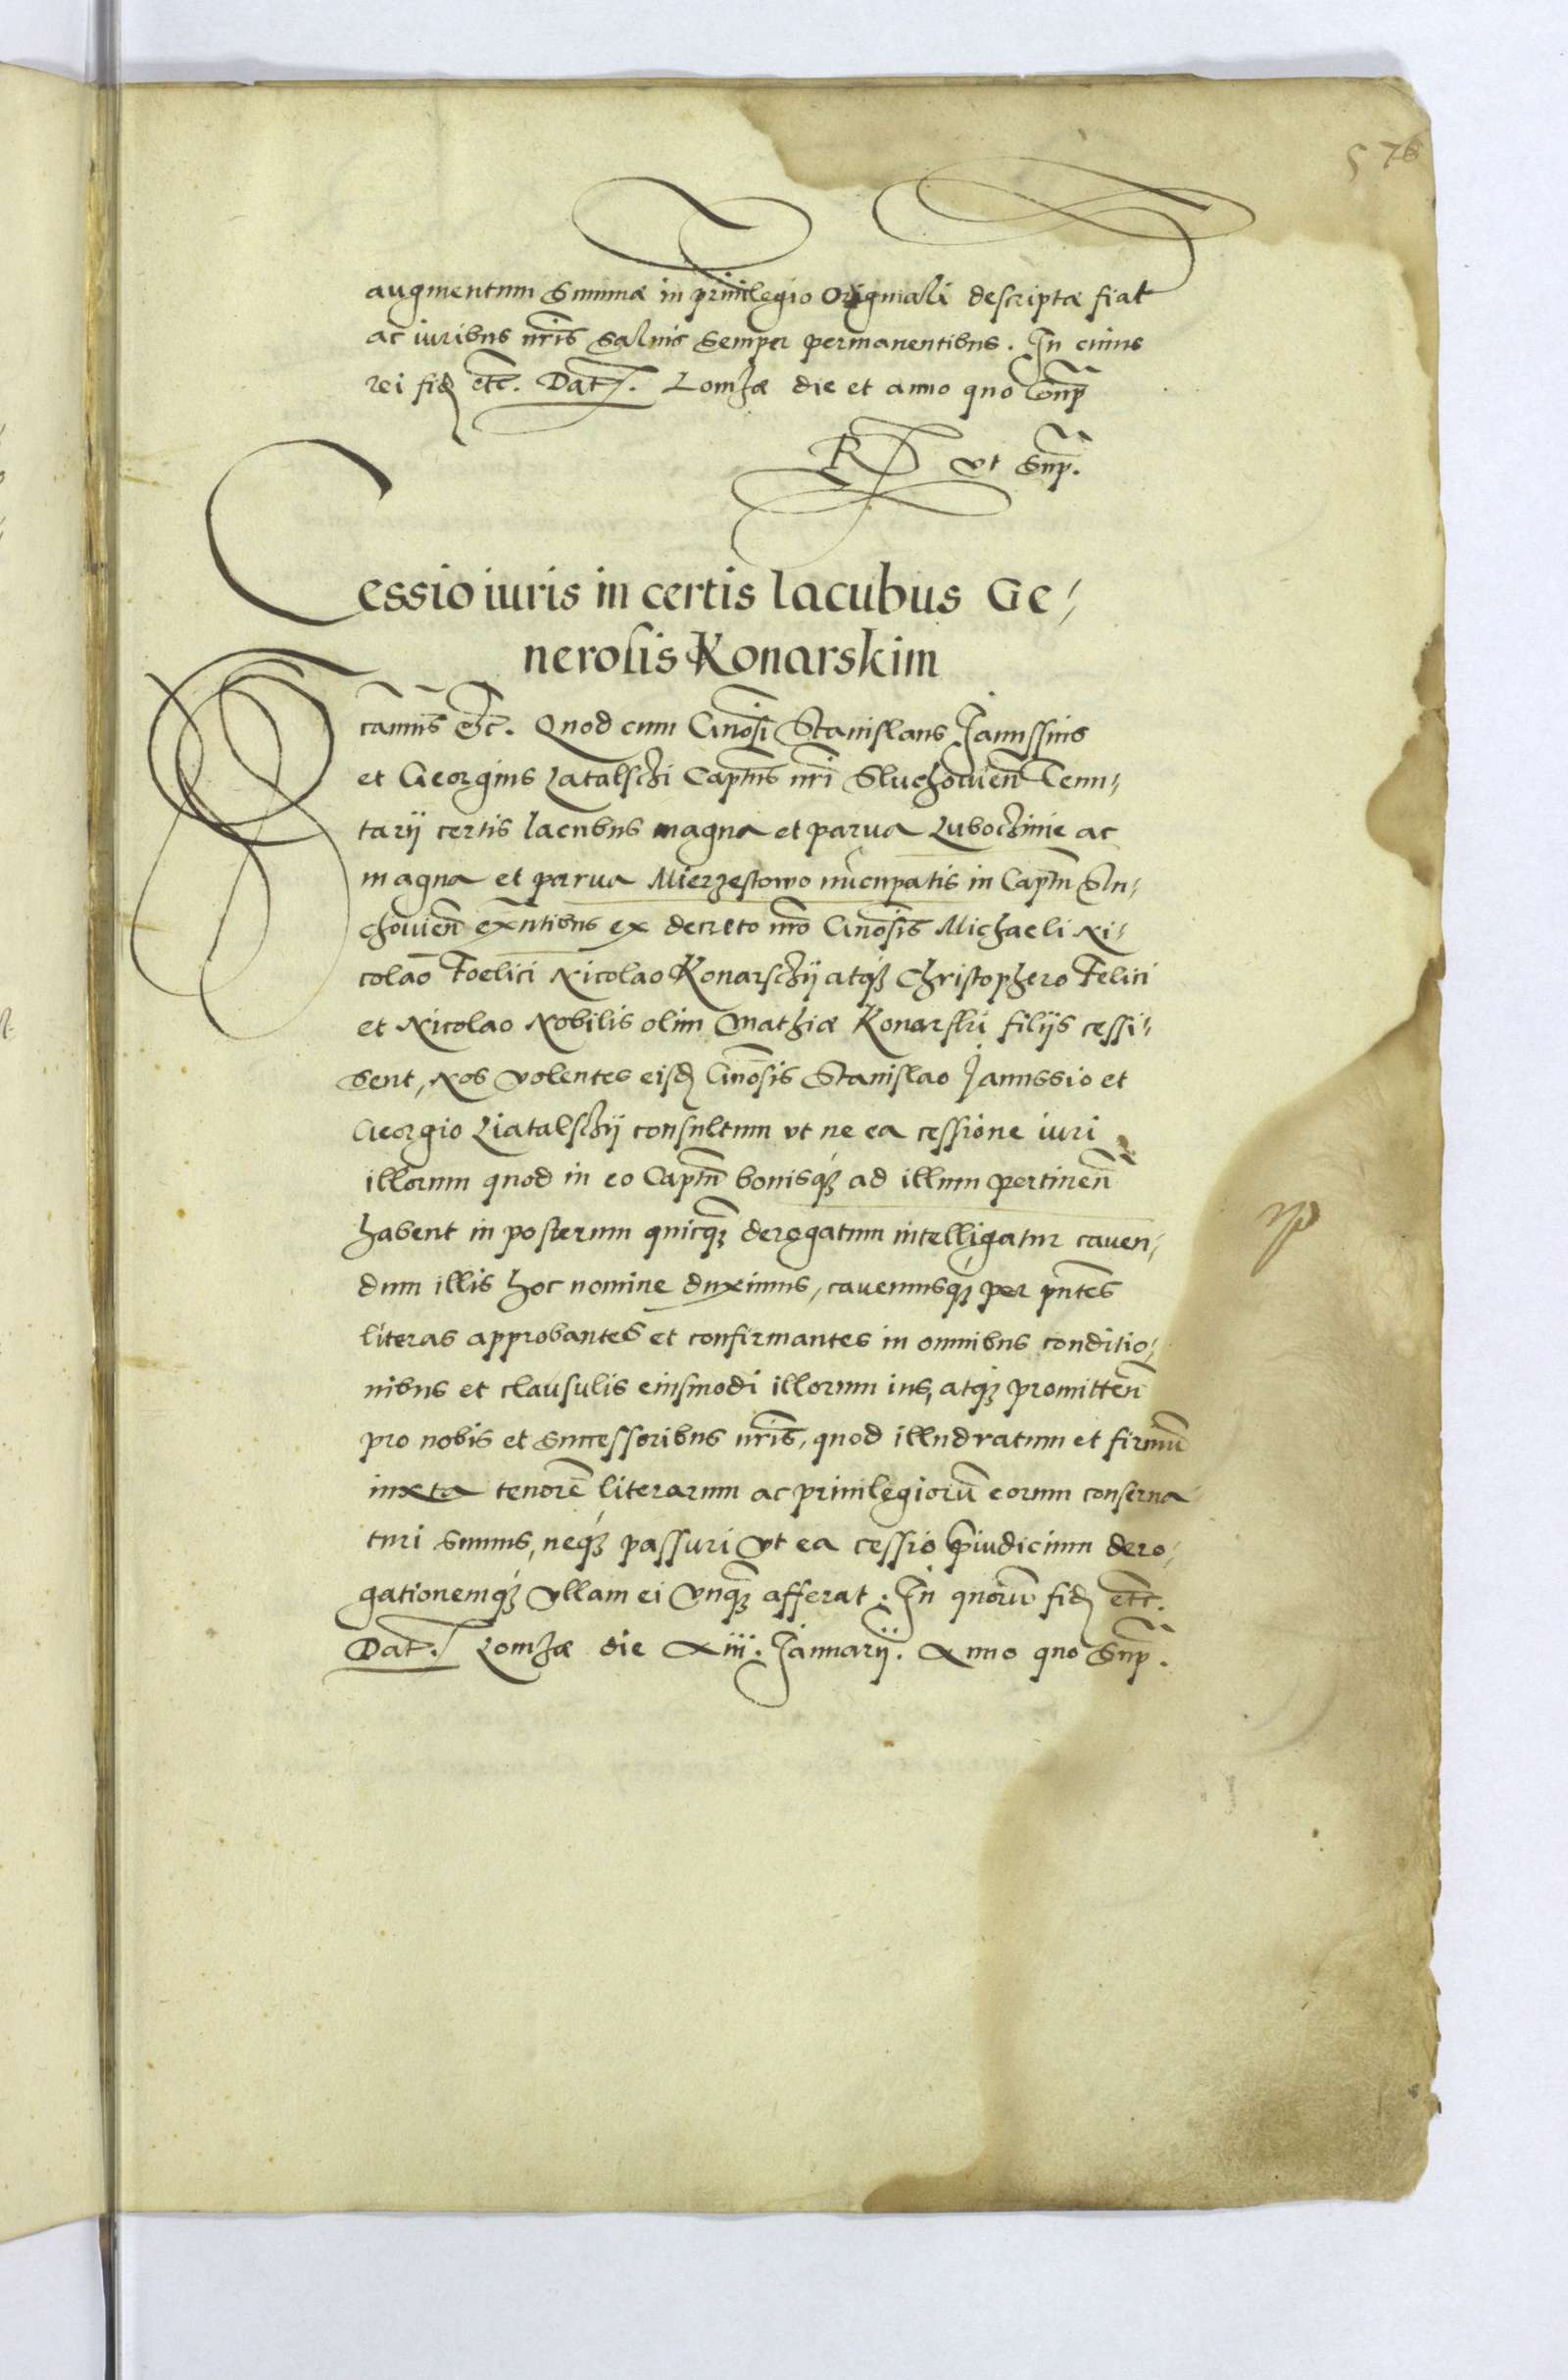 576
augmentum Summæ in priuilegio Originali descriptæ fiat
ac iuribus nr̄is Saluis Semper permanentibus. In cuius
rei fid etc. Dat. Lomzæ die et anno quo Supr̄
R vt Sup̄.
Cessio iuris in certis lacubus Ge-
nerosis Konarskim
camus etc. Quod cum Gnōsi Stanislaus Janussius
et Georgius Latalschi Captūs nr̄i Sluchouien̄ Tenu-
tarij certis lacubus magna et parua Lubochinie ac
magna et parua Mierzestowo nūcupatis in Captū Slu-
chouien̄ exn̄tibus ex decreto nr̄o Gnōsis Michaeli Ni-
colao Foelici Nicolao Konarschij atq₃ Christophero Felici
et Nicolao Nobilis olim Mathiæ Konarski filijs cessi-
sent, Nos volentes eisd Gnōsis Stanislao Janussio et
Georgio Liatalschij consultum vt ne ea cessione iuri
illorum quod in eo Captū bonisq₃ ad illum pertinen̄
habent in posterum quicq₃ derogatum intelligatur caven-
dum illis hoc nomine duximus, cavemusq₃ per pn̄tes
literas approbantes et confirmantes in omnibus conditio-
nibus et clausulis eiusmodi illorum ius, atq₃ promitten̄
pro nobis et successoribus nr̄is, quod illud ratum et firmū
iuxta tenorē literarum ac priuilegiorū eorum conserua
turi sumus, neq₃ passuri vt ea cessio p̄iudicium dero-
gationemq₃ vllam ei vnq₃ afferat. In quorū fid etc.
Dat. Lomzæ die Xiii. Januarij. Anno quo Sup̄.